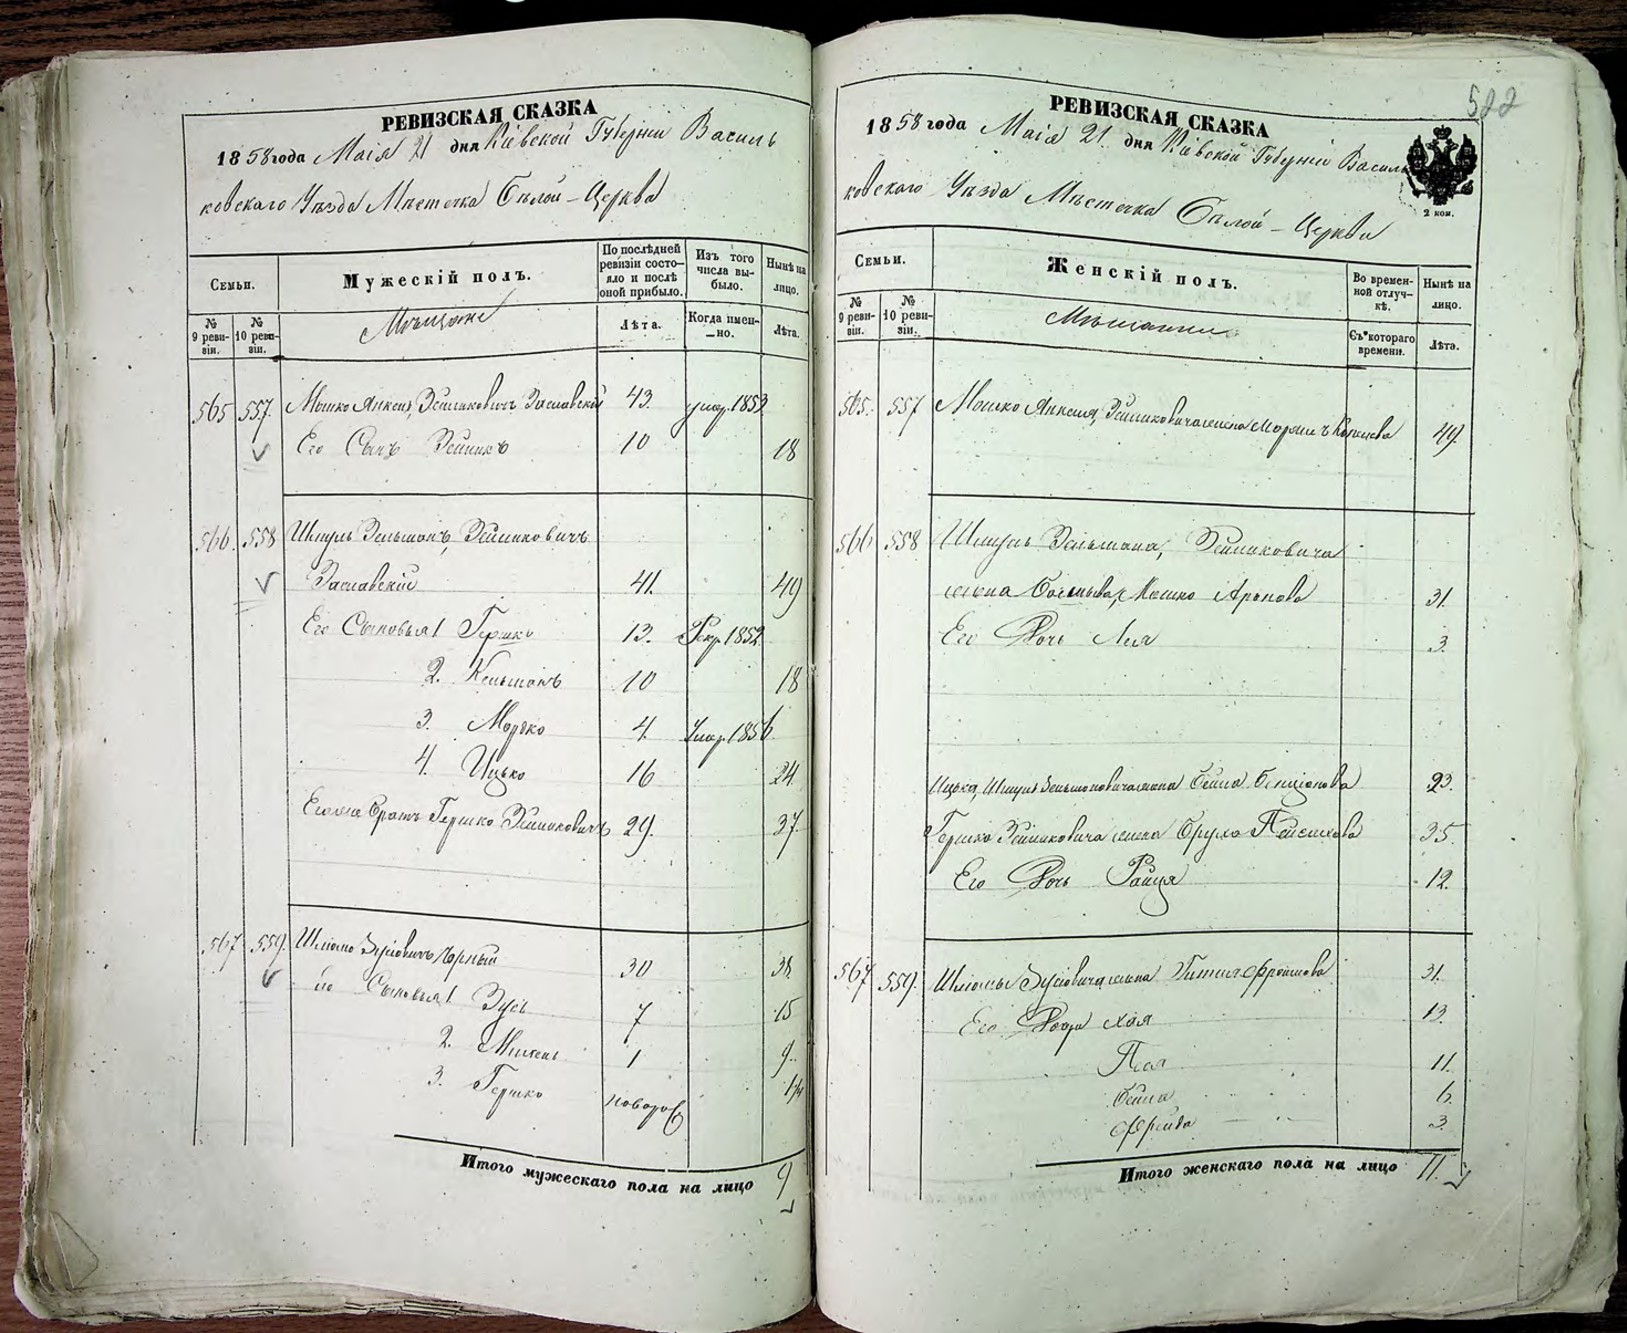 РЕВИЗСКАЯ СКАЗКА
1858 года Маія 21 дня Кіевской Губерніи Василь
ковскаго Уѣзда Мѣстечка Бѣлой-Церкви
Семьи.
Мужескій полъ.
По послѣдней ревизіи состояло и послѣ оной прибыло.
Изъ того числа выбыло.
Нынѣ на лицо.
№ 9 ревизіи.
№ 10 ревизіи.
Мѣщане
Лѣта.
Когда имен-
-но.
Лѣта.
565 557. Мошко Янкель, Зейликовичъ Заславскій 43. умер. 1853
Его Сынъ Зейликъ 10 18
566. 558 Шмуль Зельманъ, Зейликовичъ
Заславскій 41. 49
Его Сыновья 1 Гершко 13. Рекр. 1852
2. Кельманъ 10 18
3. Мордко 4. Умер. 1856
4. Ицько 16 24
Братъ Гершко Зейликовичъ 29. 37
567 559. Шлiома Зусіовичъ Чорный 30 38.
Сыновья 1 Зусь 7 15
2. 1 9.
3. Гершко новорож
Итого мужескаго пола на лицо 9
522
РЕВИЗСКАЯ СКАЗКА
1858 года Маія 21. дня Кіевской Губерніи Василь
ковскаго Уѣзда Мѣстечка Бѣлой-Церкви
2 коп.
Семьи.
Женскій полъ.
Во временной отлучкѣ.
Нынѣ на лицо.
№ 9 ревизіи.
№ 10 ревизіи.
Мѣщанки
Съ котораго времени.
Лѣта.
565. 557 Мошко Янкеля, Зейликовича жена 49.
566 558 Шмуля Зельмана, Зейликовича
жена Мошко Аронова 31.
Его Дочь Лея 3.
Ицька, Шмуль Зельмановича жена Бейла Бенціонова 23.
Гершка Зейликовича жена Бруха 35.
Его Дочь Раиця 12.
567 559. Шліомы Зусіовича жена Гитля Фроимова 31.
Его Дочери Хая 13
Песя 11.
Бейла 6.
Фрейда 3.
Итого женскаго пола на лицо 11.